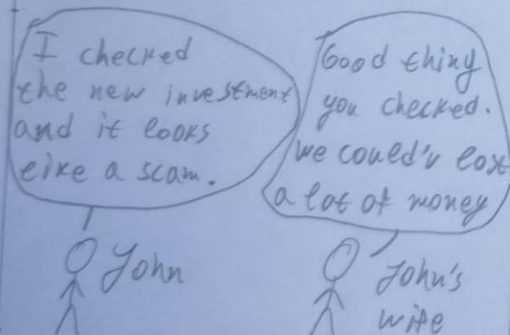 I checked
the new investment
and it looks
like a scam.
Good thing
you checked.
We could'v lost
a lot of money
John
John's
wife